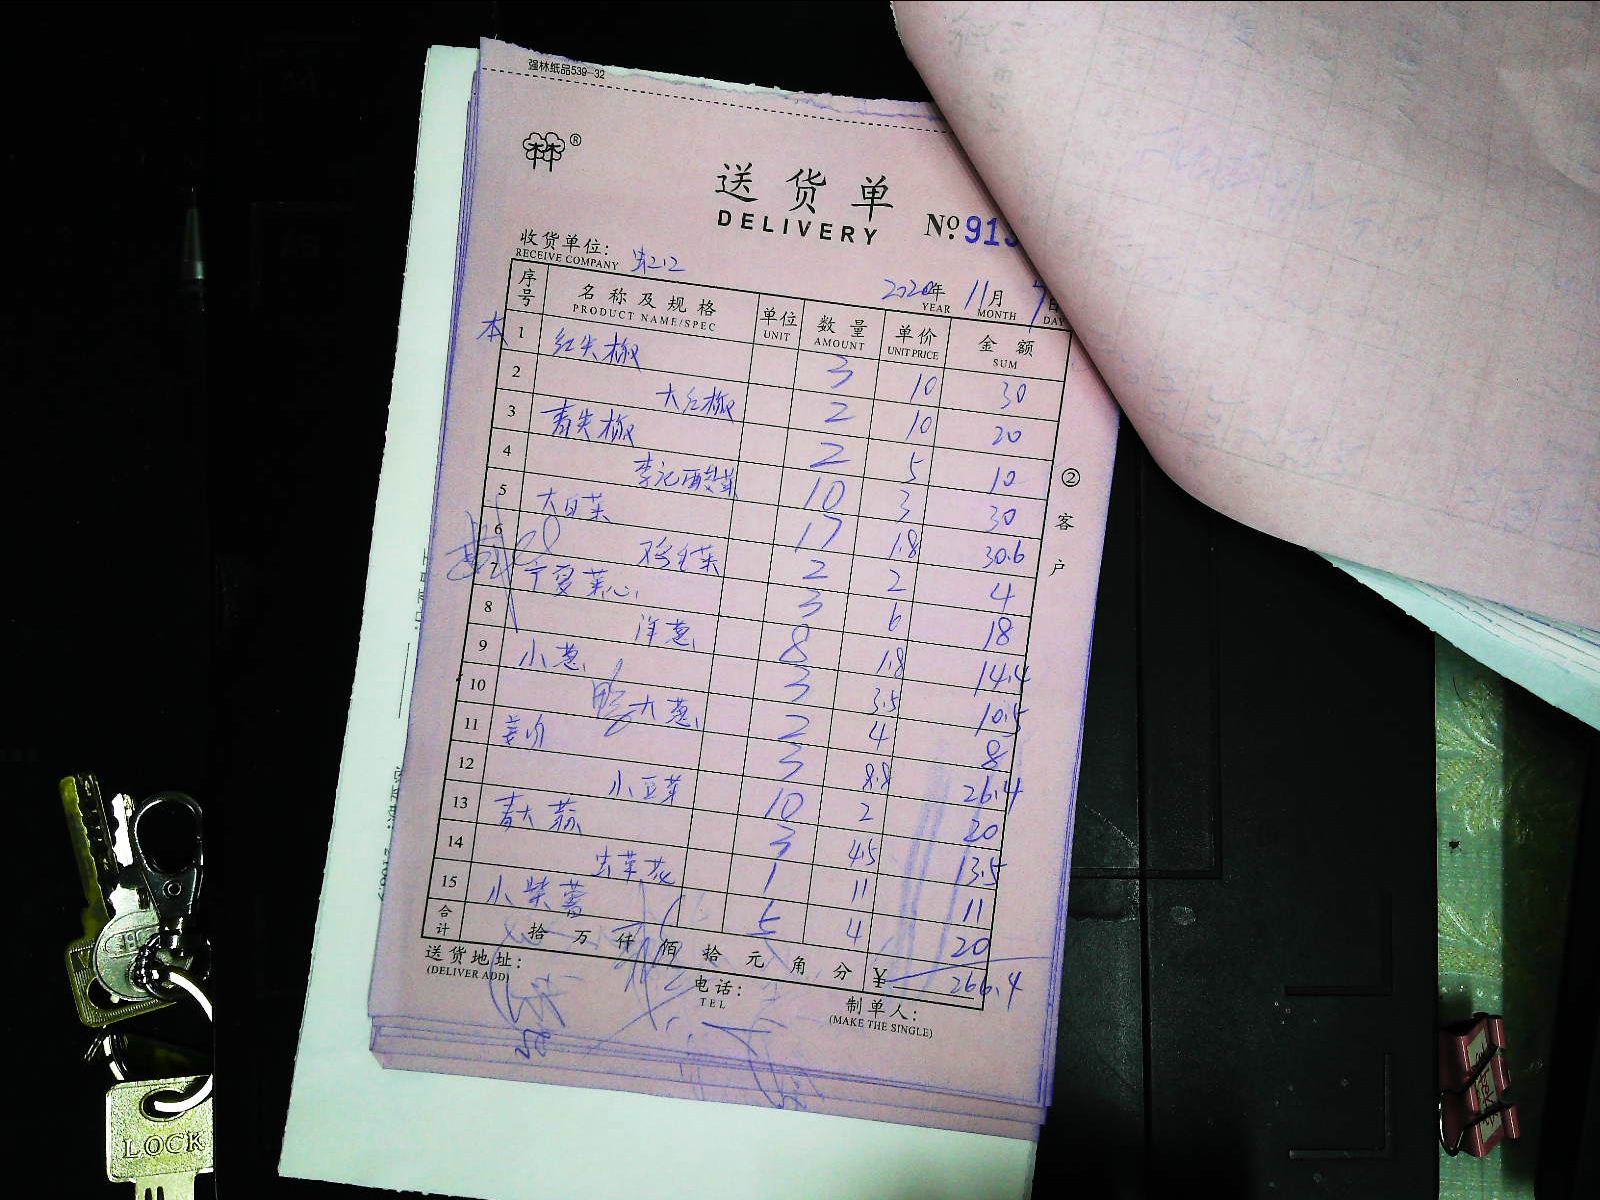 强林纸品539-32
®
送货单
DELIVERY
No. 915
收货单位:
RECEIVE COMPANY
2020年 11月 7日
YEAR MONTH DAY
序号 名称及规格 单位 数量 单价 金额
PRODUCT NAME/SPEC UNIT AMOUNT UNIT PRICE SUM
本
1 红尖椒 3 10 30
2 大红椒 2 10 20
3 青尖椒 2 5 10
4 李记酸菜 10 3 30
5 大白菜 17 1.8 30.6
6 2 2 4
7 宁夏菜心 3 6 18
8 洋葱 8 1.8 14.4
9 小葱 3 3.5 10.5
10 大葱 2 4 8
11 3 8.8 26.4
12 小豆芽 10 2 20
13 青大蒜 3 4.5 13.5
14 1 11 11
15 小紫薯 5 4 20
合计 拾 万 仟 佰 拾 元 角 分 ¥ 266.4
送货地址:
(DELIVER ADD)
电话:
TEL
制单人:
(MAKE THE SINGLE)
②客户
LOCK